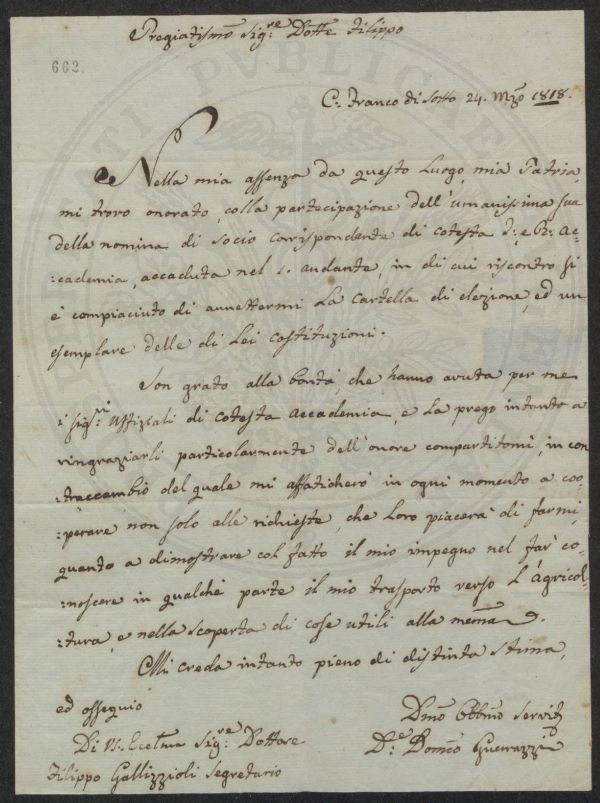 Pregiatismo Sig:re Dotte Filippo
662.
C. Franco di Sotto 24. Mzo 1818.
Nella mia assenza da questo Luogo, mia Patria,
mi trovo onorato, colla partecipazione dell'umanissima sua
della nomina di Socio Corrispondente di cotesta I: e R: Ac-
:cademia, accaduta nel 1. andante, in di cui riscontro si
è compiaciuto di annettermi La Cartella di elezione, ed un
esemplare delle di Lei Costituzioni.
Son grato alla bontà, che hanno avuta per me
i Sigri Uffiziali di cotesta Accademia, e La prego intanto a
ringraziarli particolarmente dell'onore compartitomi, in con
:traccambio del quale mi affaticherò in ogni momento a coo,
:perare non solo alle richieste, che Loro piacerà di farmi,
quanto a dimostrare col fatto il mio impegno nel far co-
:noscere in qualche parte il mio trasporto verso L'Agricol-
:tura, e nella scoperta di cose utili alla medma.
Mi creda intanto pieno di distinta stima,
ed ossequio
Di V. Eccelma Sig:re Dottore
Filippo Gallizzioli Segretario
Dmo Obbmo Servit
D:e Domco Guerrazzi